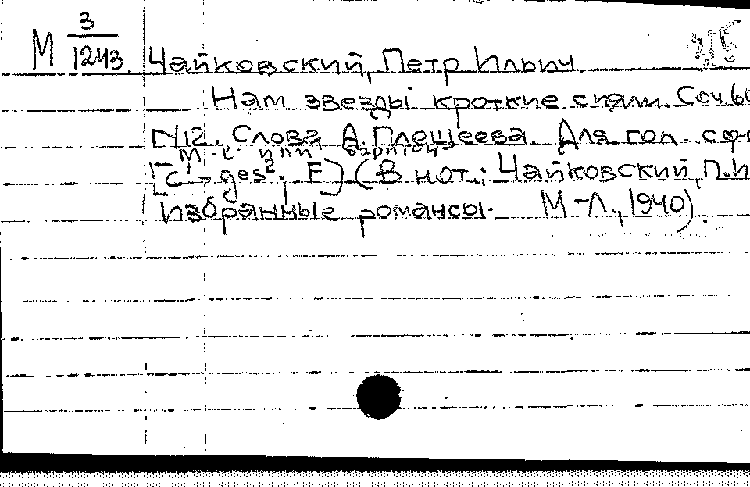 М 3/1243 Чайковский, Петр Ильич 215
Нам звезды кроткие сияли. Соч. 60
N12. Слова А. Плещеева. Для гол. с ф-п
М.-с. или баритон
[c¹ - ges², F] (В нот.: Чайковский, П.И
Избранные романсы. М-Л., 1940).